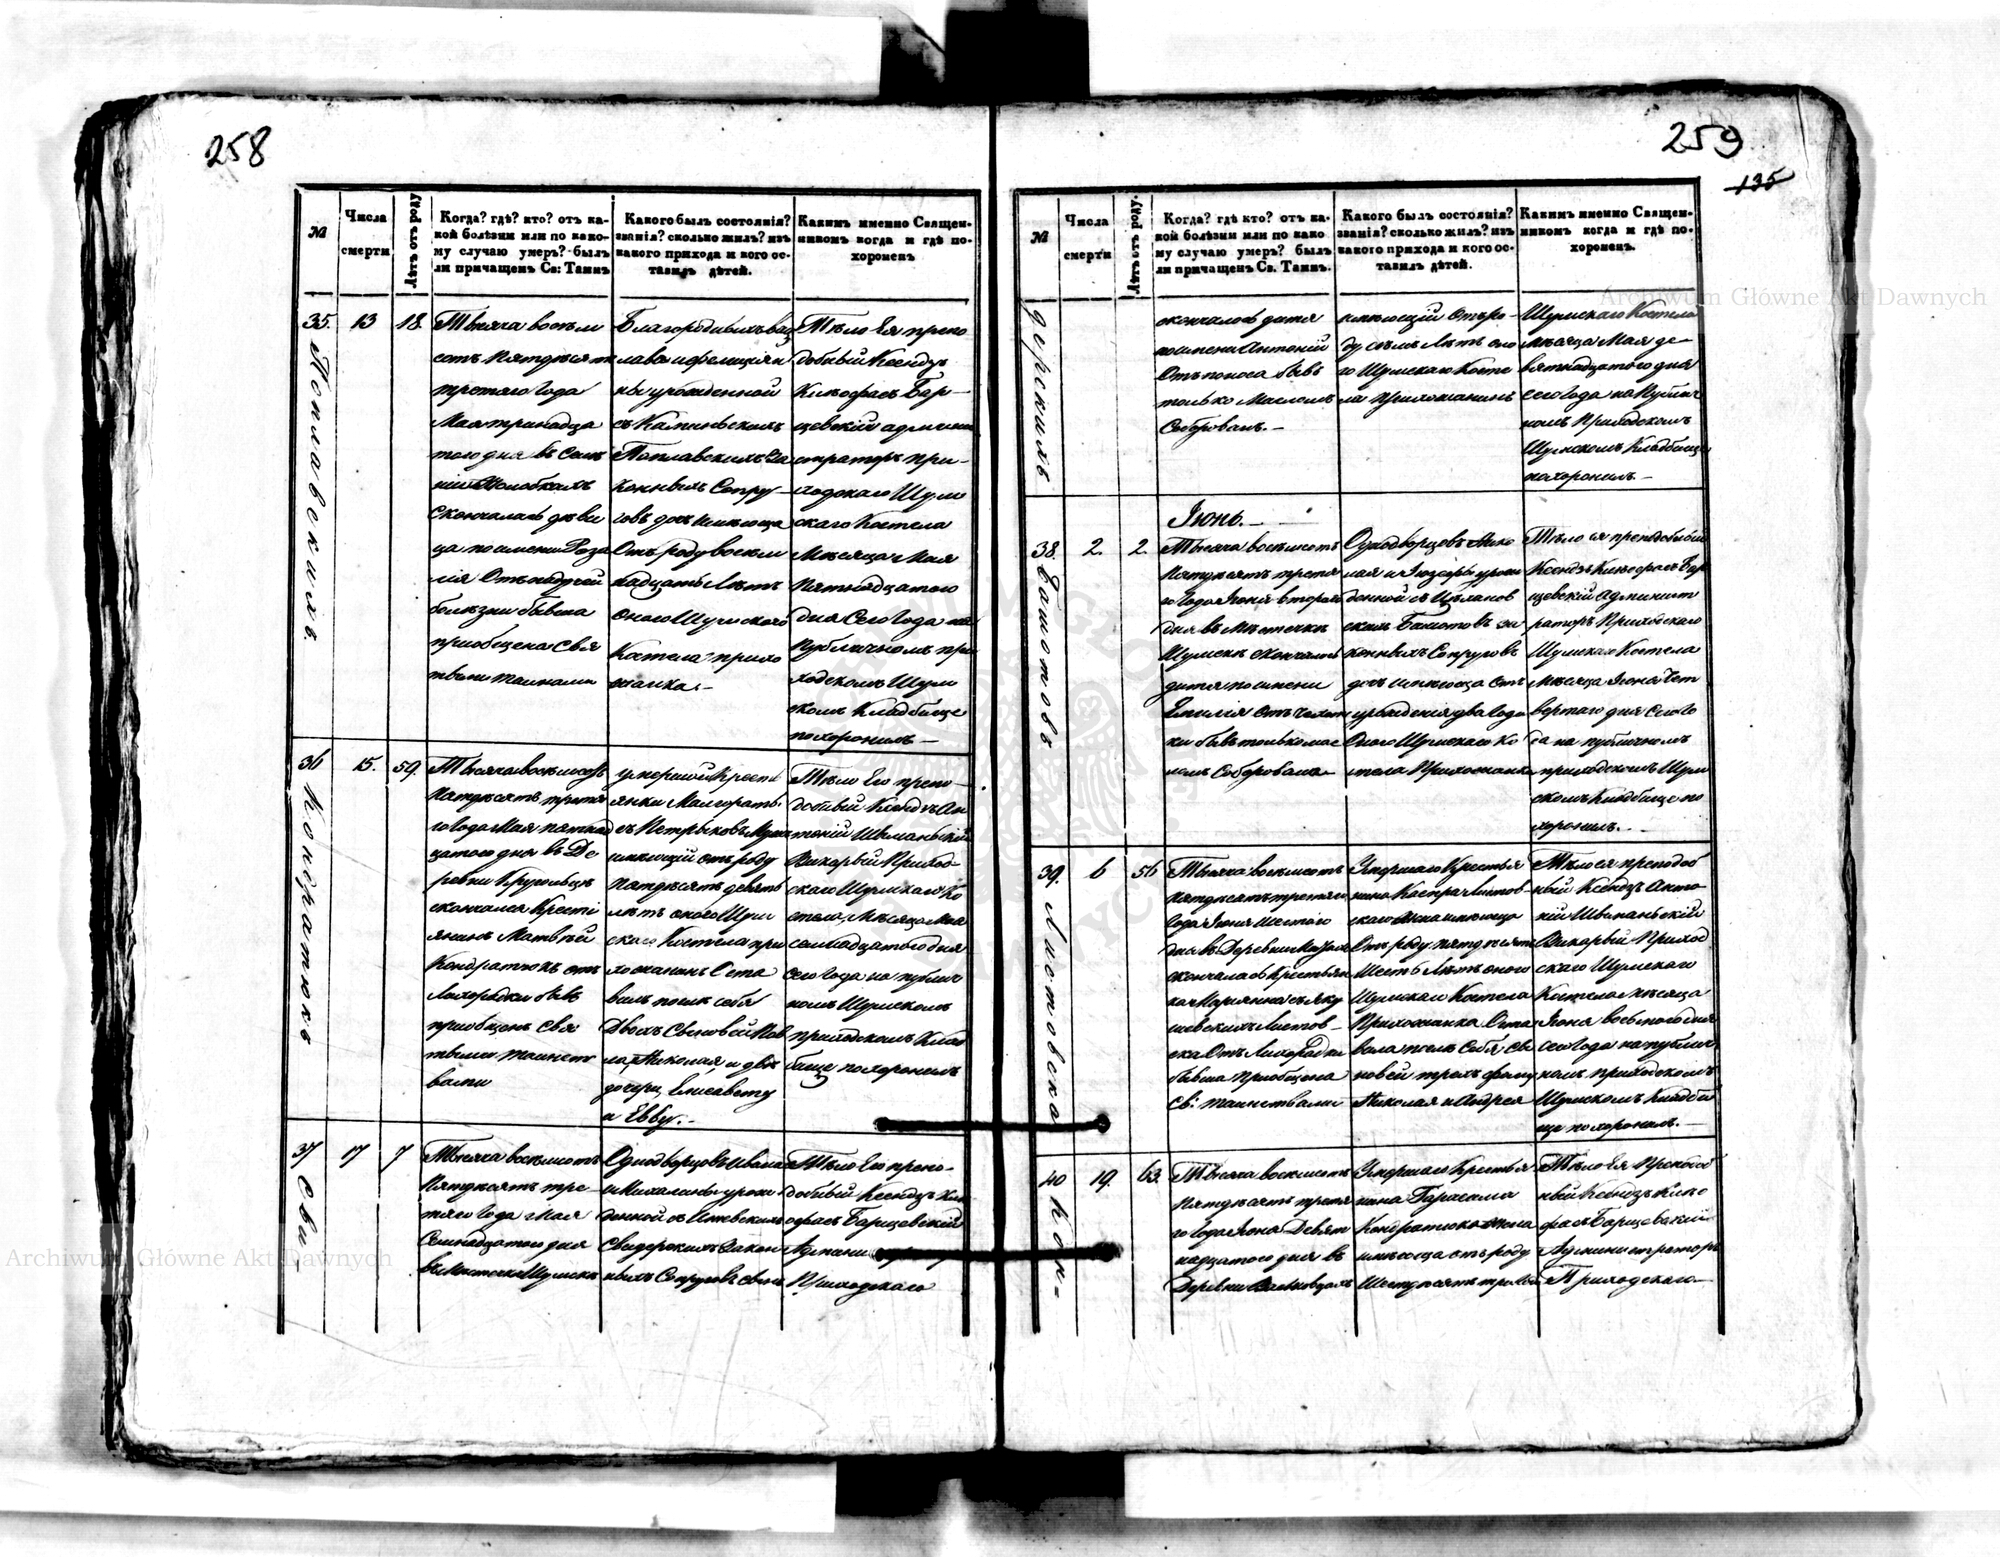 258
№
Числа
смерти
Лѣтъ отъ роду
Когда? гдѣ? кто? отъ ка-
кой болѣзни или по како-
му случаю умеръ? былъ
ли причащенъ Св: Таинъ
Какого былъ состоянія?
званія? сколько жилъ? изъ
какого прихода и кого ос-
тавилъ дѣтей.
Какимъ именно Священ-
никомъ когда и гдѣ по-
хороненъ
35.
Поплавскихъ
13
18.
Тысяча восемь
сотъ пятдесятъ
третяго года
Мая тринадца
того дня въ Селе
скончалась деви
ца по имени Роза
лія Отъ падучей
болезни бывша
приобщена Свя
тыми таинами
Благородныхъ
лава и Фелиціян
ны урожденной
съ Каминьскихъ
Поплавскихъ За
конныхъ Супру
говъ дочь имеюща
Отъ роду восем
надцать Летъ
оного Шумского
Костела прихо
жанка.-
Тѣло Ея препо
добный Ксендзъ
Никофасъ Бар-
щевскій админи
стратор при-
ходскаго Шум
скаго Костела
Месяца Мая
пятнадцатого
дня Сего Года на
Публичномъ при
ходскомъ Шум
скомъ Кладбище
похоронилъ—
36
Кондратюкъ
15.
59.
Тысяча восемсотъ
пятдесятъ третя
го Года Мая пятнад
цатого дня въ Де
ревни Круголець
скончался Кресті
янинъ Матвѣй
Кондратюкъ отъ
Лихорадки бывъ
приобщенъ Свя
тыми таинст
вами
умершой Кресті
янки Малгораты
съ Петрыковъ Мужъ
имеющій отъ роду
пятдесятъ девять
летъ оного Шум
скаго Костела при
хожанинъ Оста
вилъ после себя
Двохъ Сыновей Пав
ла, Николая, и две
дочери, Елисавету
и Евву.-
Тѣло Его препо-
добный Ксендзъ Ан
тоній Швманьскій
Викарый Приход-
скаго Шумскаго Ко
стела, Месяца Мая
семнадцатого дня
Сего Года на публич
номъ Шумскомъ
приходскомъ Клад
бище похоронилъ
37
Сви-
17
7
Тысяча восемсотъ
Пятдесятъ тре-
тяго Года Мая
Семнадцатого дня
въ Местечке Шумске
Однодворцовъ Ивана
и Михалины урож
денной съ Ижевскихъ
Свидерскихъ Закон
ныхъ Супруговъ Сынъ
Тѣло Его препо-
добный Ксендзъ Ник
офасъ Барщевскій
Админи
Приходскаго
259
135
№
Числа
смерти
Лѣтъ отъ роду.
Когда? гдѣ кто? отъ ка-
кой болѣзни или по како
му случаю умеръ? былъ
ли причащенъ Св. Таинъ.
Какого былъ состоянія?
званія? сколько жилъ? изъ
какого прихода и кого ос-
тавилъ дѣтей.
Какимъ именно Священ-
никомъ когда и гдѣ по-
хороненъ.
дерскихъ
скончалось дитя
по имени Антоній
Отъ поноса бывъ
только Маслом
Соборованъ.-
имеющій Отъ ро-
ду семь Летъ оно
го Шумскаго Косте
ла Прихожанинъ
Шумскаго Костела
Месяца Мая де-
вятнадцатого дня
Сего Года на Публич
номъ Приходскомъ
Шумскомъ Кладбище
похоронилъ—
Іюнь.—
38.
Башотовъ
2.
2.
Тысяча восемсотъ
Пятдесятъ третя
го Года Іюня второго
дня въ Местечки
Шумске скончалось
дитя по имени
Емилія отъ
ки бывъ только мас
лом Соборована
Однодворцовъ Нико
лая и Юзефы урож
денной съ Цеханов
скихъ Башотовъ за
конныхъ Супруговъ
дочь имеюща отъ
урождения два Года
Оного Шумскаго Ко
стела Прихожанка
Тѣло ея преподобный
Ксендзъ Никофасъ Бар
щевскій Админист
раторъ Приходскаго
Шумскаго Костела
Месяца Іюня Чет
вертаго дня Сего Го
да на публичномъ
приходскомъ Шум
скомъ Кладбище по
хоронилъ..
39.
Листовска
6
56
Тысяча восемсотъ
пятдесятъ третяго
Года Іюня шестого
дня въ Деревни
скончалась Крестьян
ка Марианна съ Яку
шевскихъ Листов-
ска Отъ Лихорадки
бывша приобщена
Св: таинствами
Умершаго Крестья
нина Каспра Листов-
скаго жена имеюща
Отъ роду пятдесятъ
Шесть Летъ оного
Шумскаго Костела
Прихожанка Оста
вила после Себя Сы
новей трехъ
Николая и Андрея
Тѣло ея преподоб
ный Ксендзъ Анто
ній Швманьскій
Викарый Приход
скаго Шумскаго
Костела месяца
Іюня восьмого дня
сего Года на публич
номъ приходскомъ
Шумскомъ Кладби
ще похоронилъ.—
40
Кон-
19.
63.
Тысяча восемсотъ
Пятдесятъ третя
го Года Іюня Девят
надцатого дня въ
Деревни
Умершаго Крестья
нина Герасима
Кондратюка жена
имеюща отъ роду
Шестдесятъ три
Тѣло Ея Преподоб
ный Ксендзъ Нико
фасъ Барщевскій
Администраторъ
Приходскаго—
Archiwum Główne Akt Dawnych
Archiwum Główne Akt Dawnych